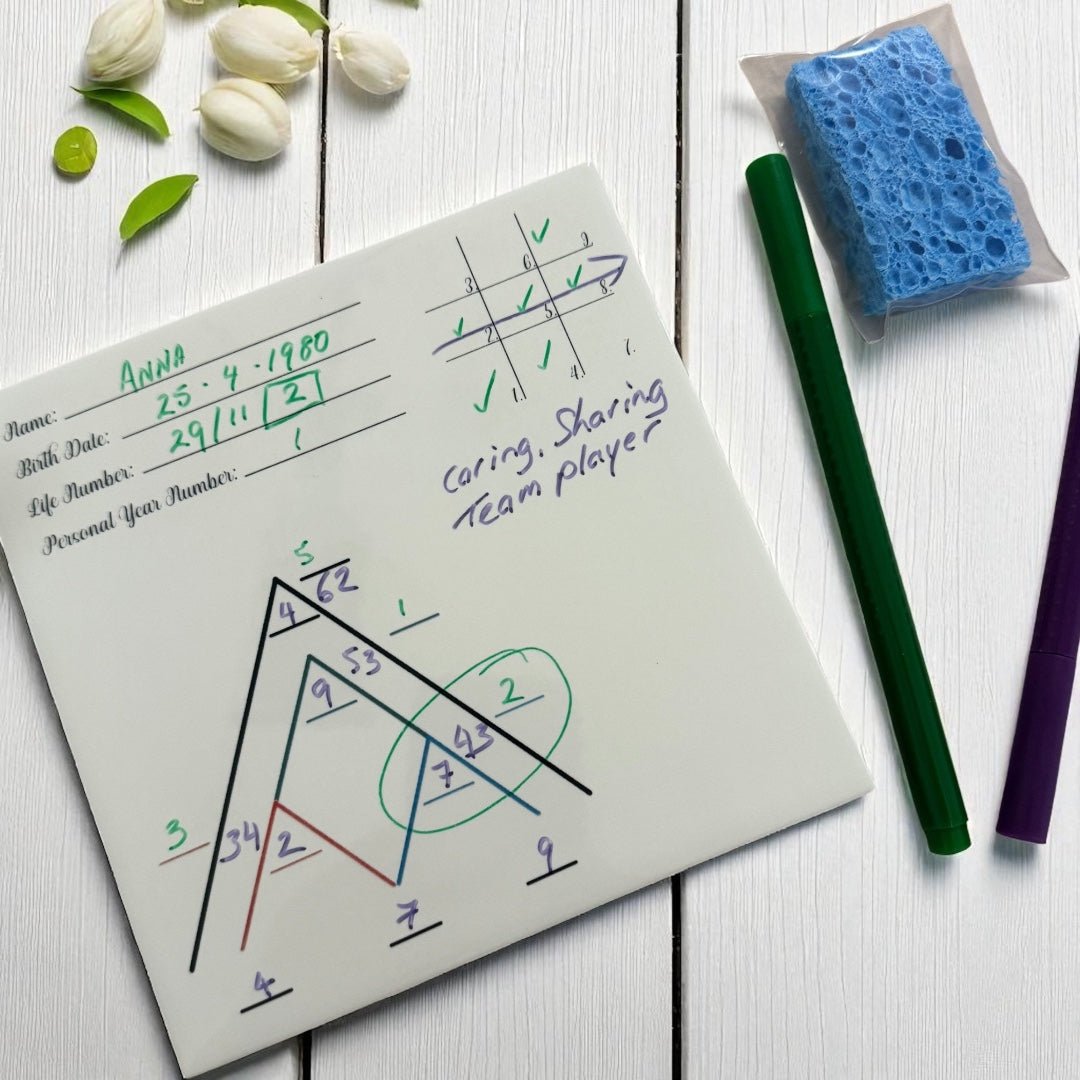 Name: ANNA
Birth Date: 25 · 4 · 1980
Life Number: 29/11 2
Personal Year Number: 1
3. 6. 9.
2. 5. 8.
1. 4. 7.
Caring, Sharing
Team player
5
4 62
1
9 53
2
7 43
3 34 2
9
7
4